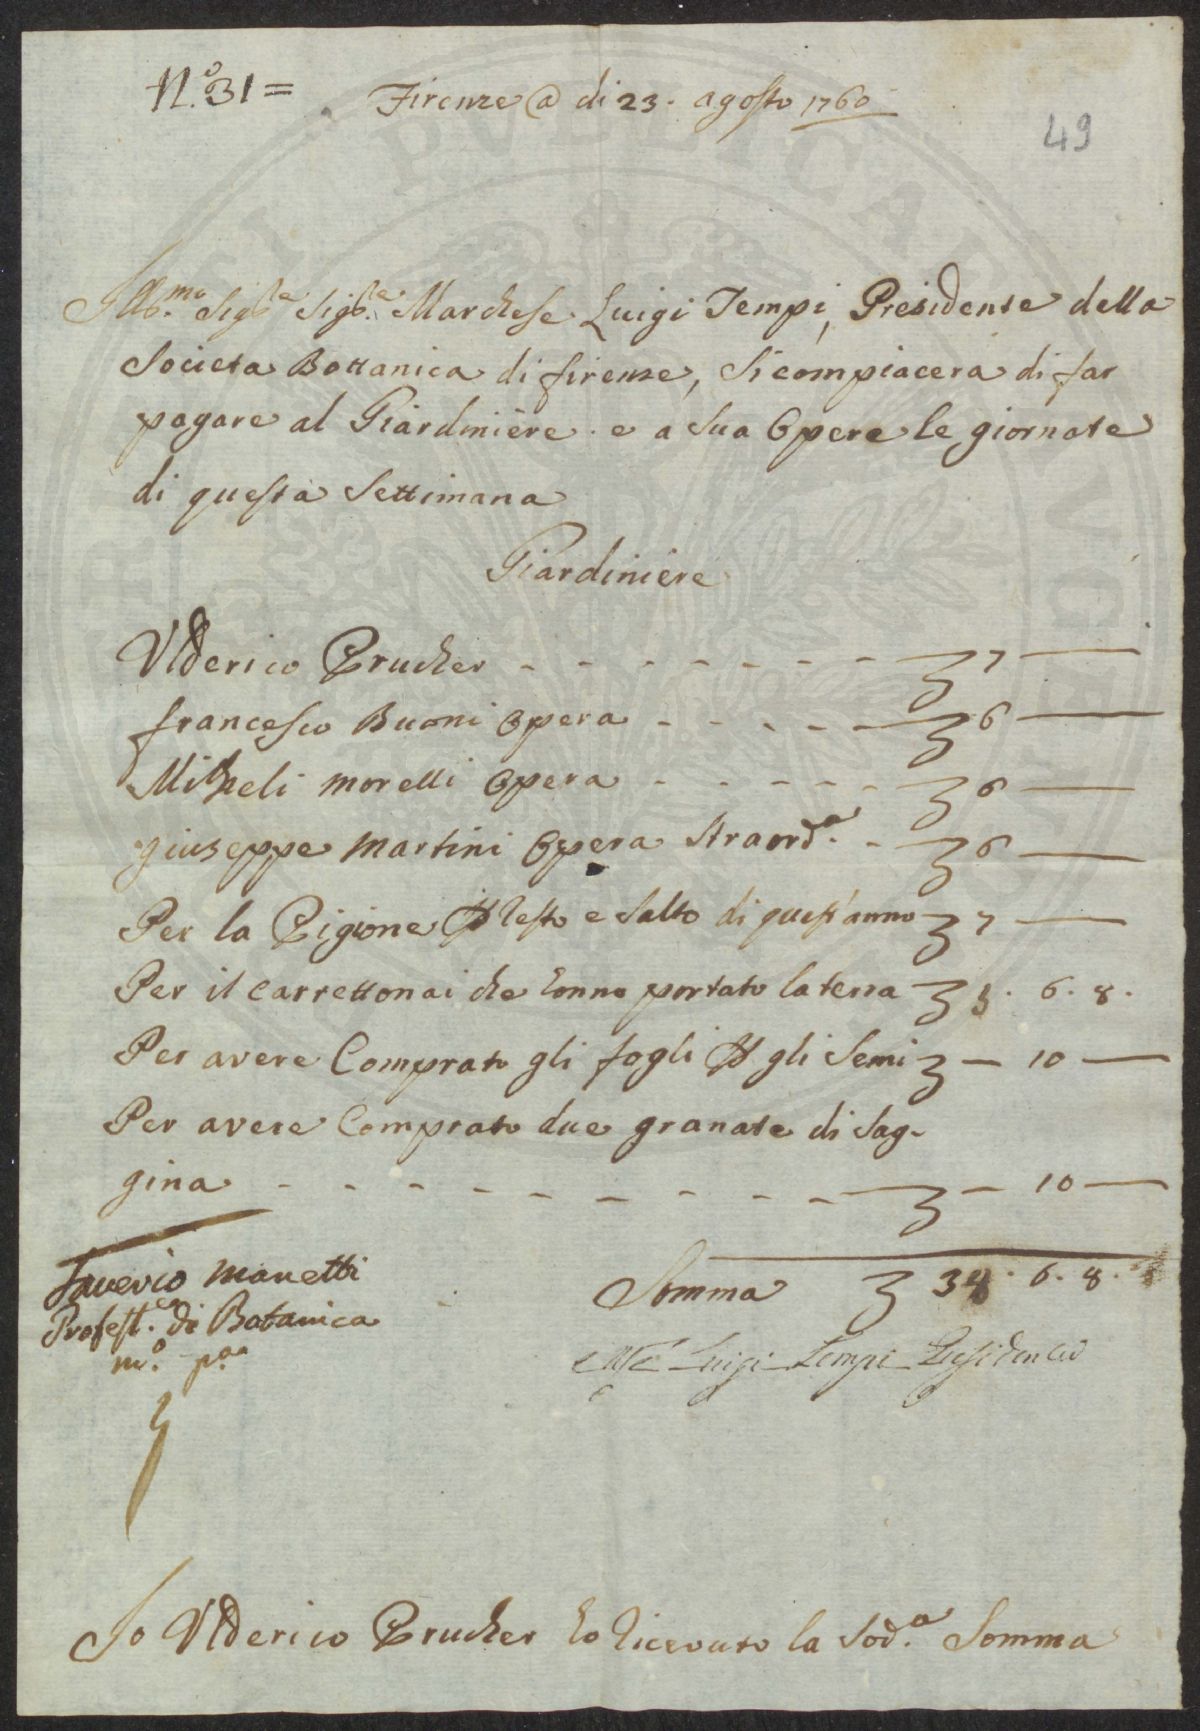 N.º 31 =
Firenze @ di 23. agosto 1760
49
Ill.mo Sig.re Sig.re Marchese Luigi Tempi, Presidente della
Societa Bottanica di firenze, Si compiacerà di far
pagare al Giardinière e a sua Opere le giornate
di questa Settimana
Giardinière
Ulderico Prucher - - - - - - - - 7 —
francesco Buoni Opera - - - - - 6 —
Micheli morelli Opera - - - - - 6 —
giuseppe martini Opera Straord.a - 6 —
Per la Pigione resto e Saldo di quest'anno 7 —
Per il carrettonai che honno portato la terra . 6 . 8 .
Per avere Comprato gli fogli gli Semi — 10 —
Per avere Comprato due granate di Sag-
gina - - - - - - - - - — 10 —
Saverio Manetti
Profess.e di Botanica
m.o p.a
Somma . 6 . 8 .
Luigi Tempi Presidente
Io Ulderico Prucher ho ricevuto la Sod.a Somma